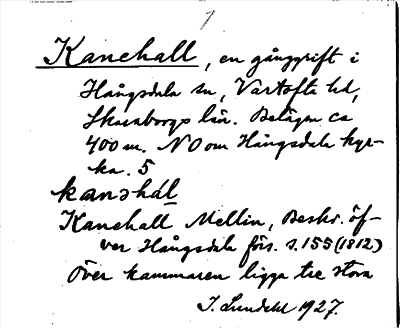 1
Kanehall, en gånggrift i
Hångsdala sn, Vartofta hd,
Skaraborgs län. Belägen ca
400 m. NO om Hångsdala kyr-
ka. 5
kanəhal
Kanehall Mellin, Beskr. öf-
ver Hångsdala förs. s. 155 (1812)
Över kammaren ligga tre stora
J. Lundahl 1927.